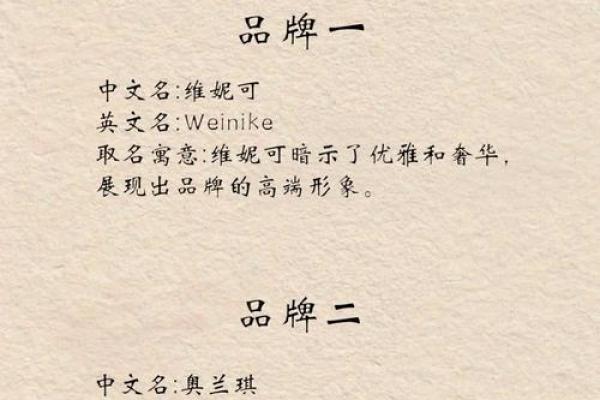 品牌一
中文名:维妮可
英文名:Weinike
取名寓意:维妮可暗示了优雅和奢华,
展现出品牌的高端形象。
品牌二
中文名:奥兰琪